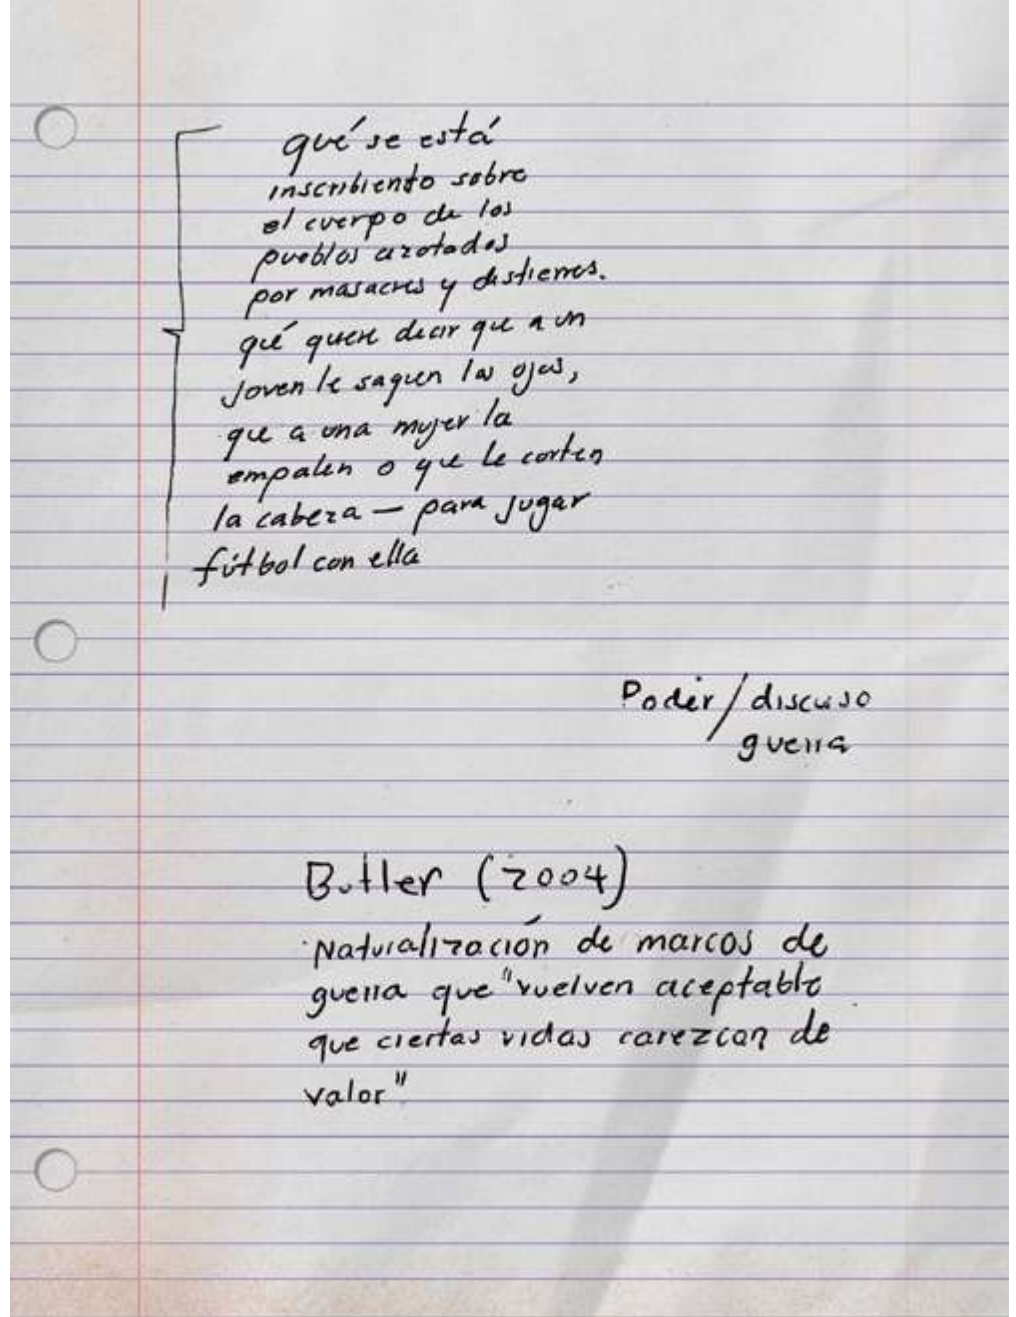 qué se está
inscribiento sobre
el cuerpo de los
pueblos azotados
por masacres y destierros.
qué quiere decir que a un
joven le saquen los ojos,
que a una mujer la
empalen o que le corten
la cabeza — para jugar
fútbol con ella
Poder/discuso
guerra
Butler (2004)
Naturalización de marcos de
guerra que "vuelven aceptable
que ciertas vidas carezcan de
valor"